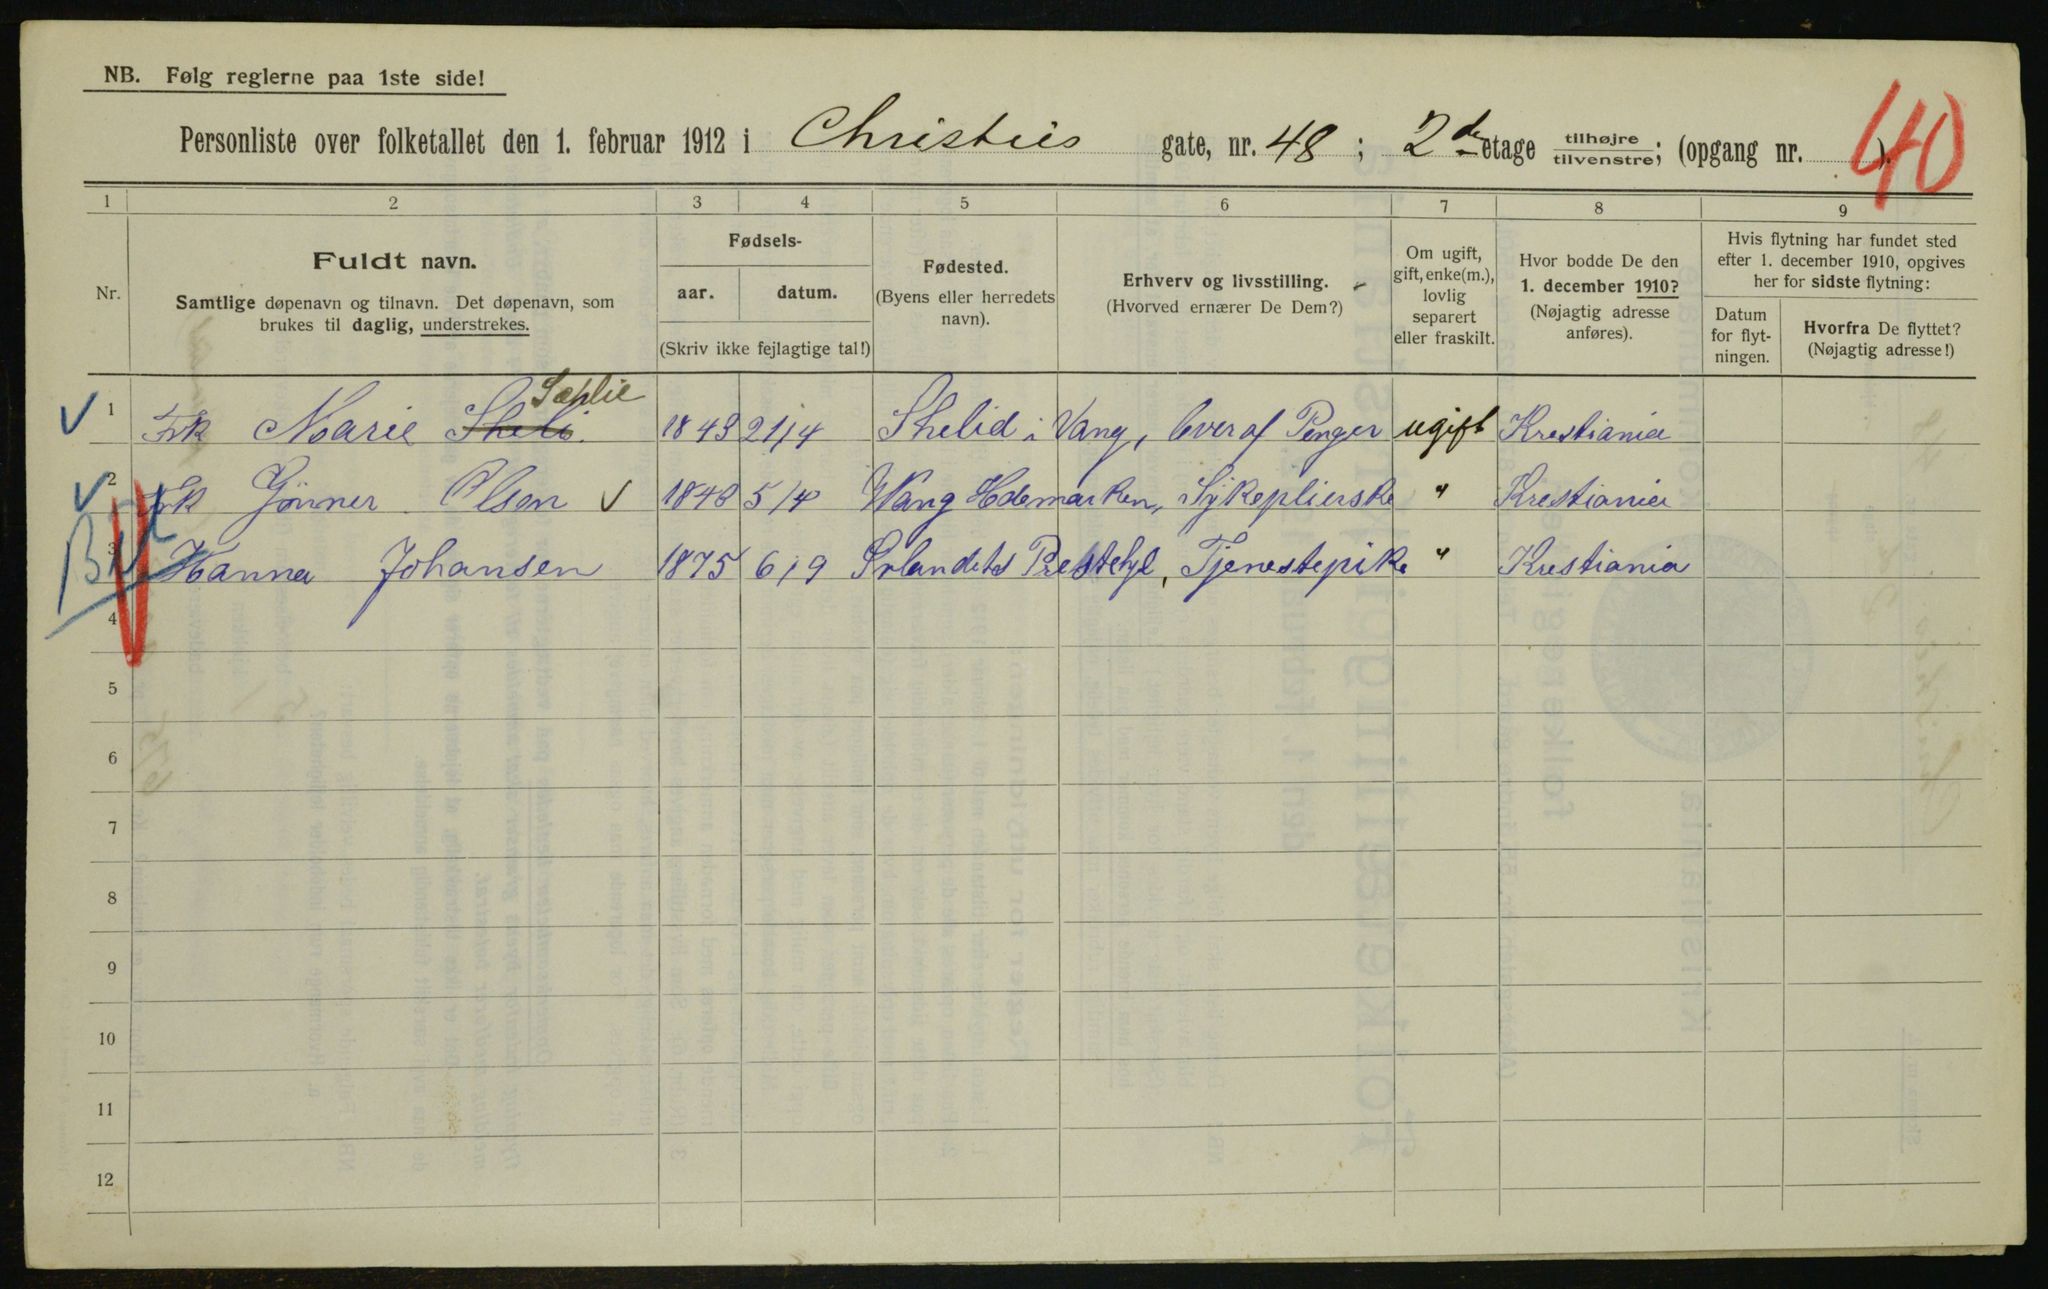 NB. Følg reglerne paa 1ste side!
Personliste over folketallet den 1. februar 1912 i Christies gate, nr. 48; 2de etage tilhøjre/tilvenstre; (opgang nr. ). 40
1 2 3 4 5 6 7 8 9
Nr.
Fuldt navn.
Samtlige døpenavn og tilnavn. Det døpenavn, som
brukes til daglig, understrekes.
Fødsels-
aar. datum.
(Skriv ikke fejlagtige tal!)
Fødested.
(Byens eller herredets
navn).
Erhverv og livsstilling.
(Hvorved ernærer De Dem?)
Om ugift,
gift, enke(m.),
lovlig
separert
eller fraskilt.
Hvor bodde De den
1. december 1910?
(Nøjagtig adresse
anføres).
Hvis flytning har fundet sted
efter 1. december 1910, opgives
her for sidste flytning:
Datum
for flyt-
ningen.
Hvorfra De flyttet?
(Nøjagtig adresse!)
Sæhlie
1 Frk Marie 1843 21/4 i Vang, lever af Penger ugift Krestiania
2 Frk Olsen 1843 5/4 Wang Hedemarken, Sykeplierske " Krestiania
3 Hanna Johansen 1875 6/9 Tjenestepike " Krestiania
4
5
6
7
8
9
10
11
12